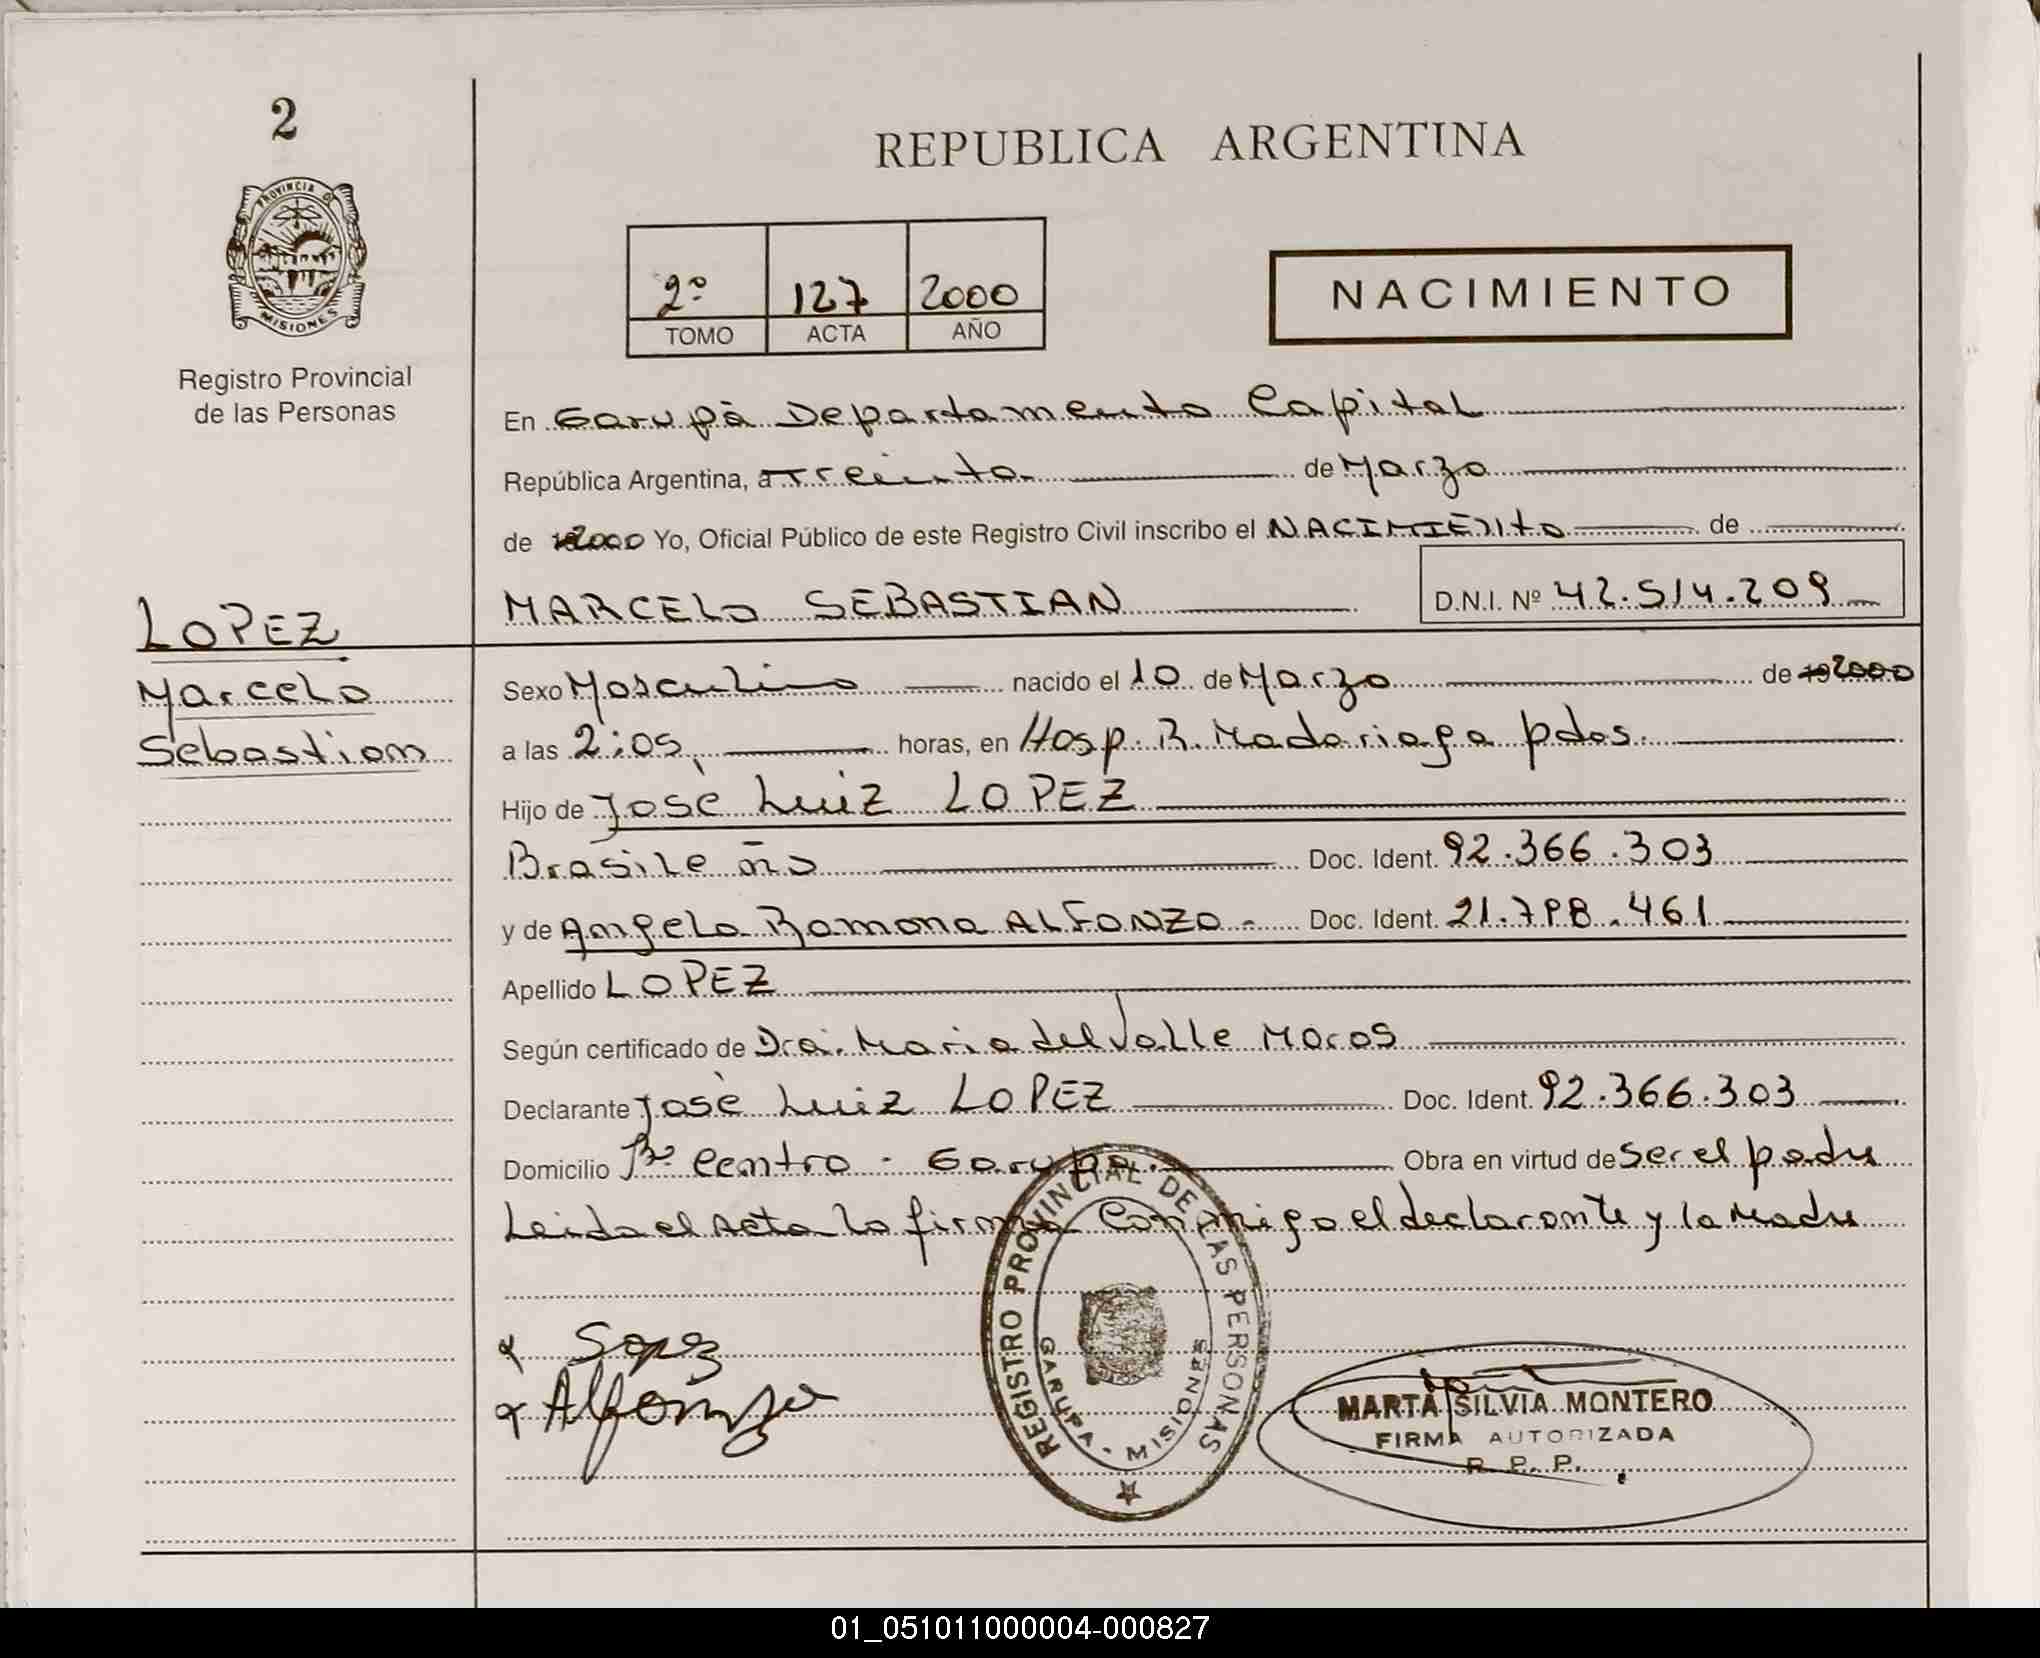 2
PROVINCIA DE
MISIONES
Registro Provincial
de las Personas
REPUBLICA ARGENTINA
2º 127 2000
TOMO ACTA AÑO
NACIMIENTO
En Garupà Departamento Capital
República Argentina, a Treinta de Marzo
de 2000 Yo, Oficial Público de este Registro Civil inscribo el NACIMIENto de
MARCELO SEBASTIAN D.N.I. Nº 42.514.209
LOPEZ
Marcelo
Sebastian
Sexo Masculino nacido el 10 de Marzo de 19 2000
a las 2:05 horas, en Hosp. R. Madariaga pdas.
Hijo de Josè Luiz LOPEZ
Brasileño Doc. Ident. 92.366.303
y de Angela Ramona ALFONZO - Doc. Ident. 21.798.461
Apellido LOPEZ
Según certificado de Dra. Maria del Valle Moros
Declarante Josè Luiz LOPEZ Doc. Ident. 92.366.303
Domicilio Bº Centro - Garupa. Obra en virtud de ser el padre
Leida el Acta la firma Conmigo el declarante y la Madre
Alfonzo
REGISTRO PROVINCIAL DE LAS PERSONAS
GARUPA - MISIONES
MARTA SILVIA MONTERO
FIRMA AUTORIZADA
R. P. P.
01_051011000004-000827